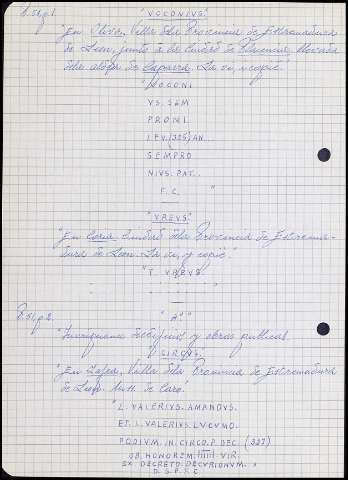 "VOCONIUS"
"En Oliva, Villa de la Provincia de Estremadura
de Leon, junto á la Ciudad de Plasencia, llevada
de Caparra. La vi, y copié."
"VOCONI
VS. SEM
PRONI.
(325) AN...
SEMPRO
NIVS. PAT..
F. C. "
"VREVS"
"En Coria, Ciudad de la Provincia de Estrema-
dura de Leon. La vi, y copié."
"T. VREVS
"A"
y obras publicas.
"CIRCVS"
"En Zafra, Villa de la Provincia de Estremadura
de Leon. Caro."
"L. VALERIVS. AMANDVS.
ET. L. VALERIVS. LVCVMO.
PODIVM. IN. CIRCO. P. DEC. (327)
OB. HONOREM. IIIIII. VIR.
EX. DECRETO. DECVRIONVM. "
D. S. P. R. C.